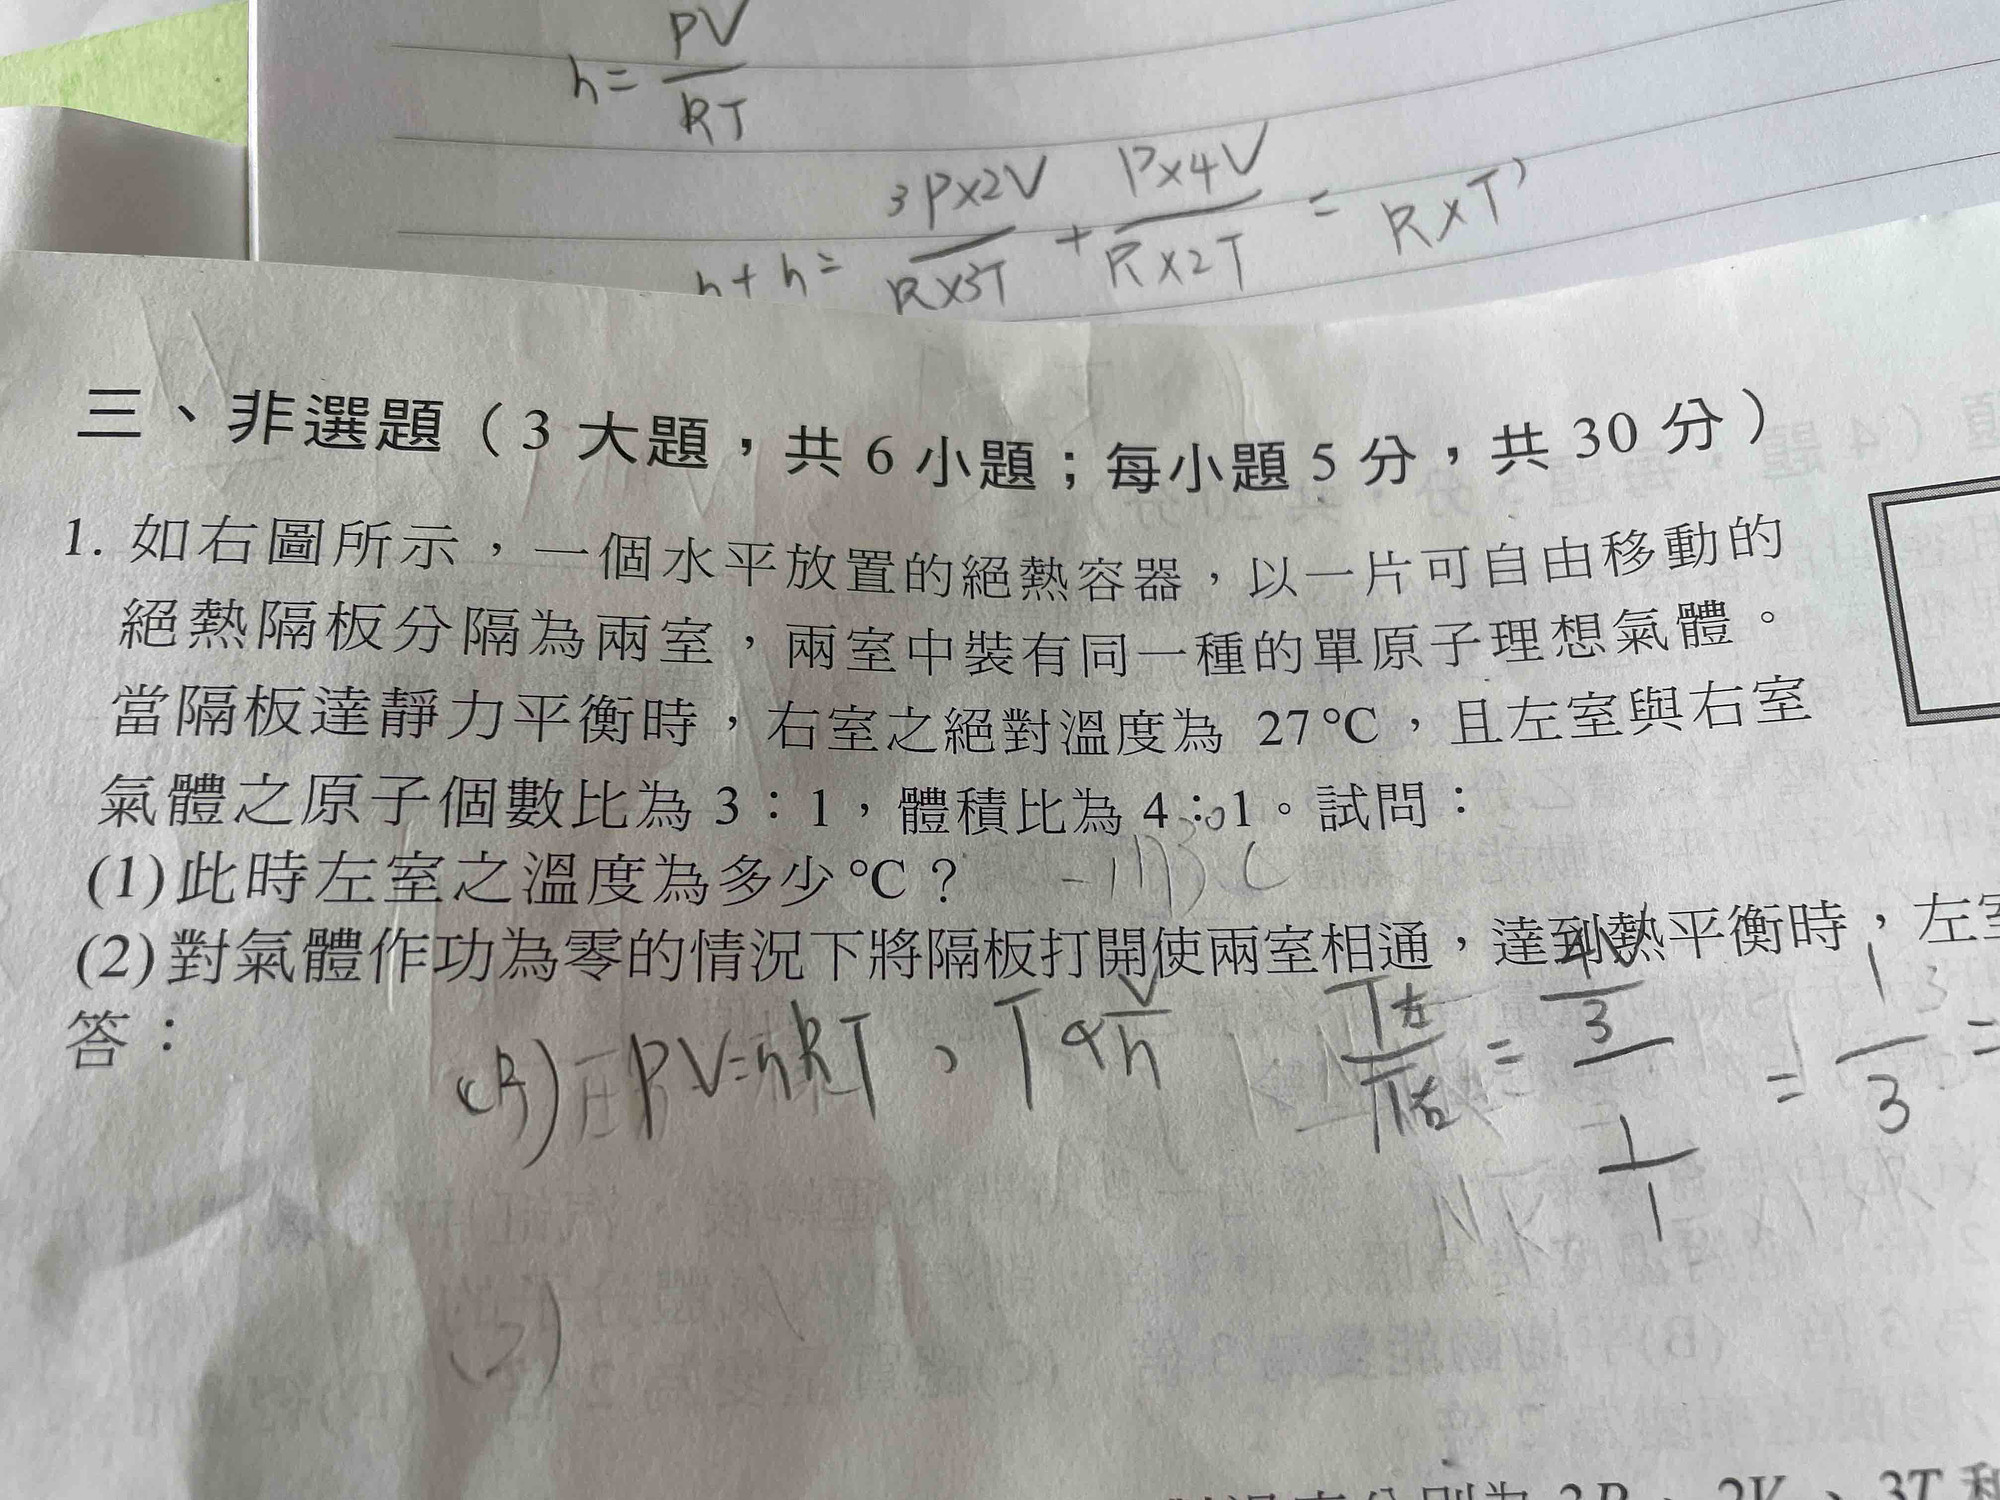 n = PV / RT
n + n = 3P×2V / R×3T + P×4V / R×2T = R×T'
三、非選題（3 大題，共 6 小題；每小題 5 分，共 30 分）
1. 如右圖所示，一個水平放置的絕熱容器，以一片可自由移動的
絕熱隔板分隔為兩室，兩室中裝有同一種的單原子理想氣體。
當隔板達靜力平衡時，右室之絕對溫度為 27℃，且左室與右室
氣體之原子個數比為 3：1，體積比為 4：1。試問：
(1)此時左室之溫度為多少℃？
(2)對氣體作功為零的情況下將隔板打開使兩室相通，達到熱平衡時，左
答：
PV=nRT、T∝V/n
T左/T右 = 4/3 / 1/1 = /3 =
(2)
2V、3T 和